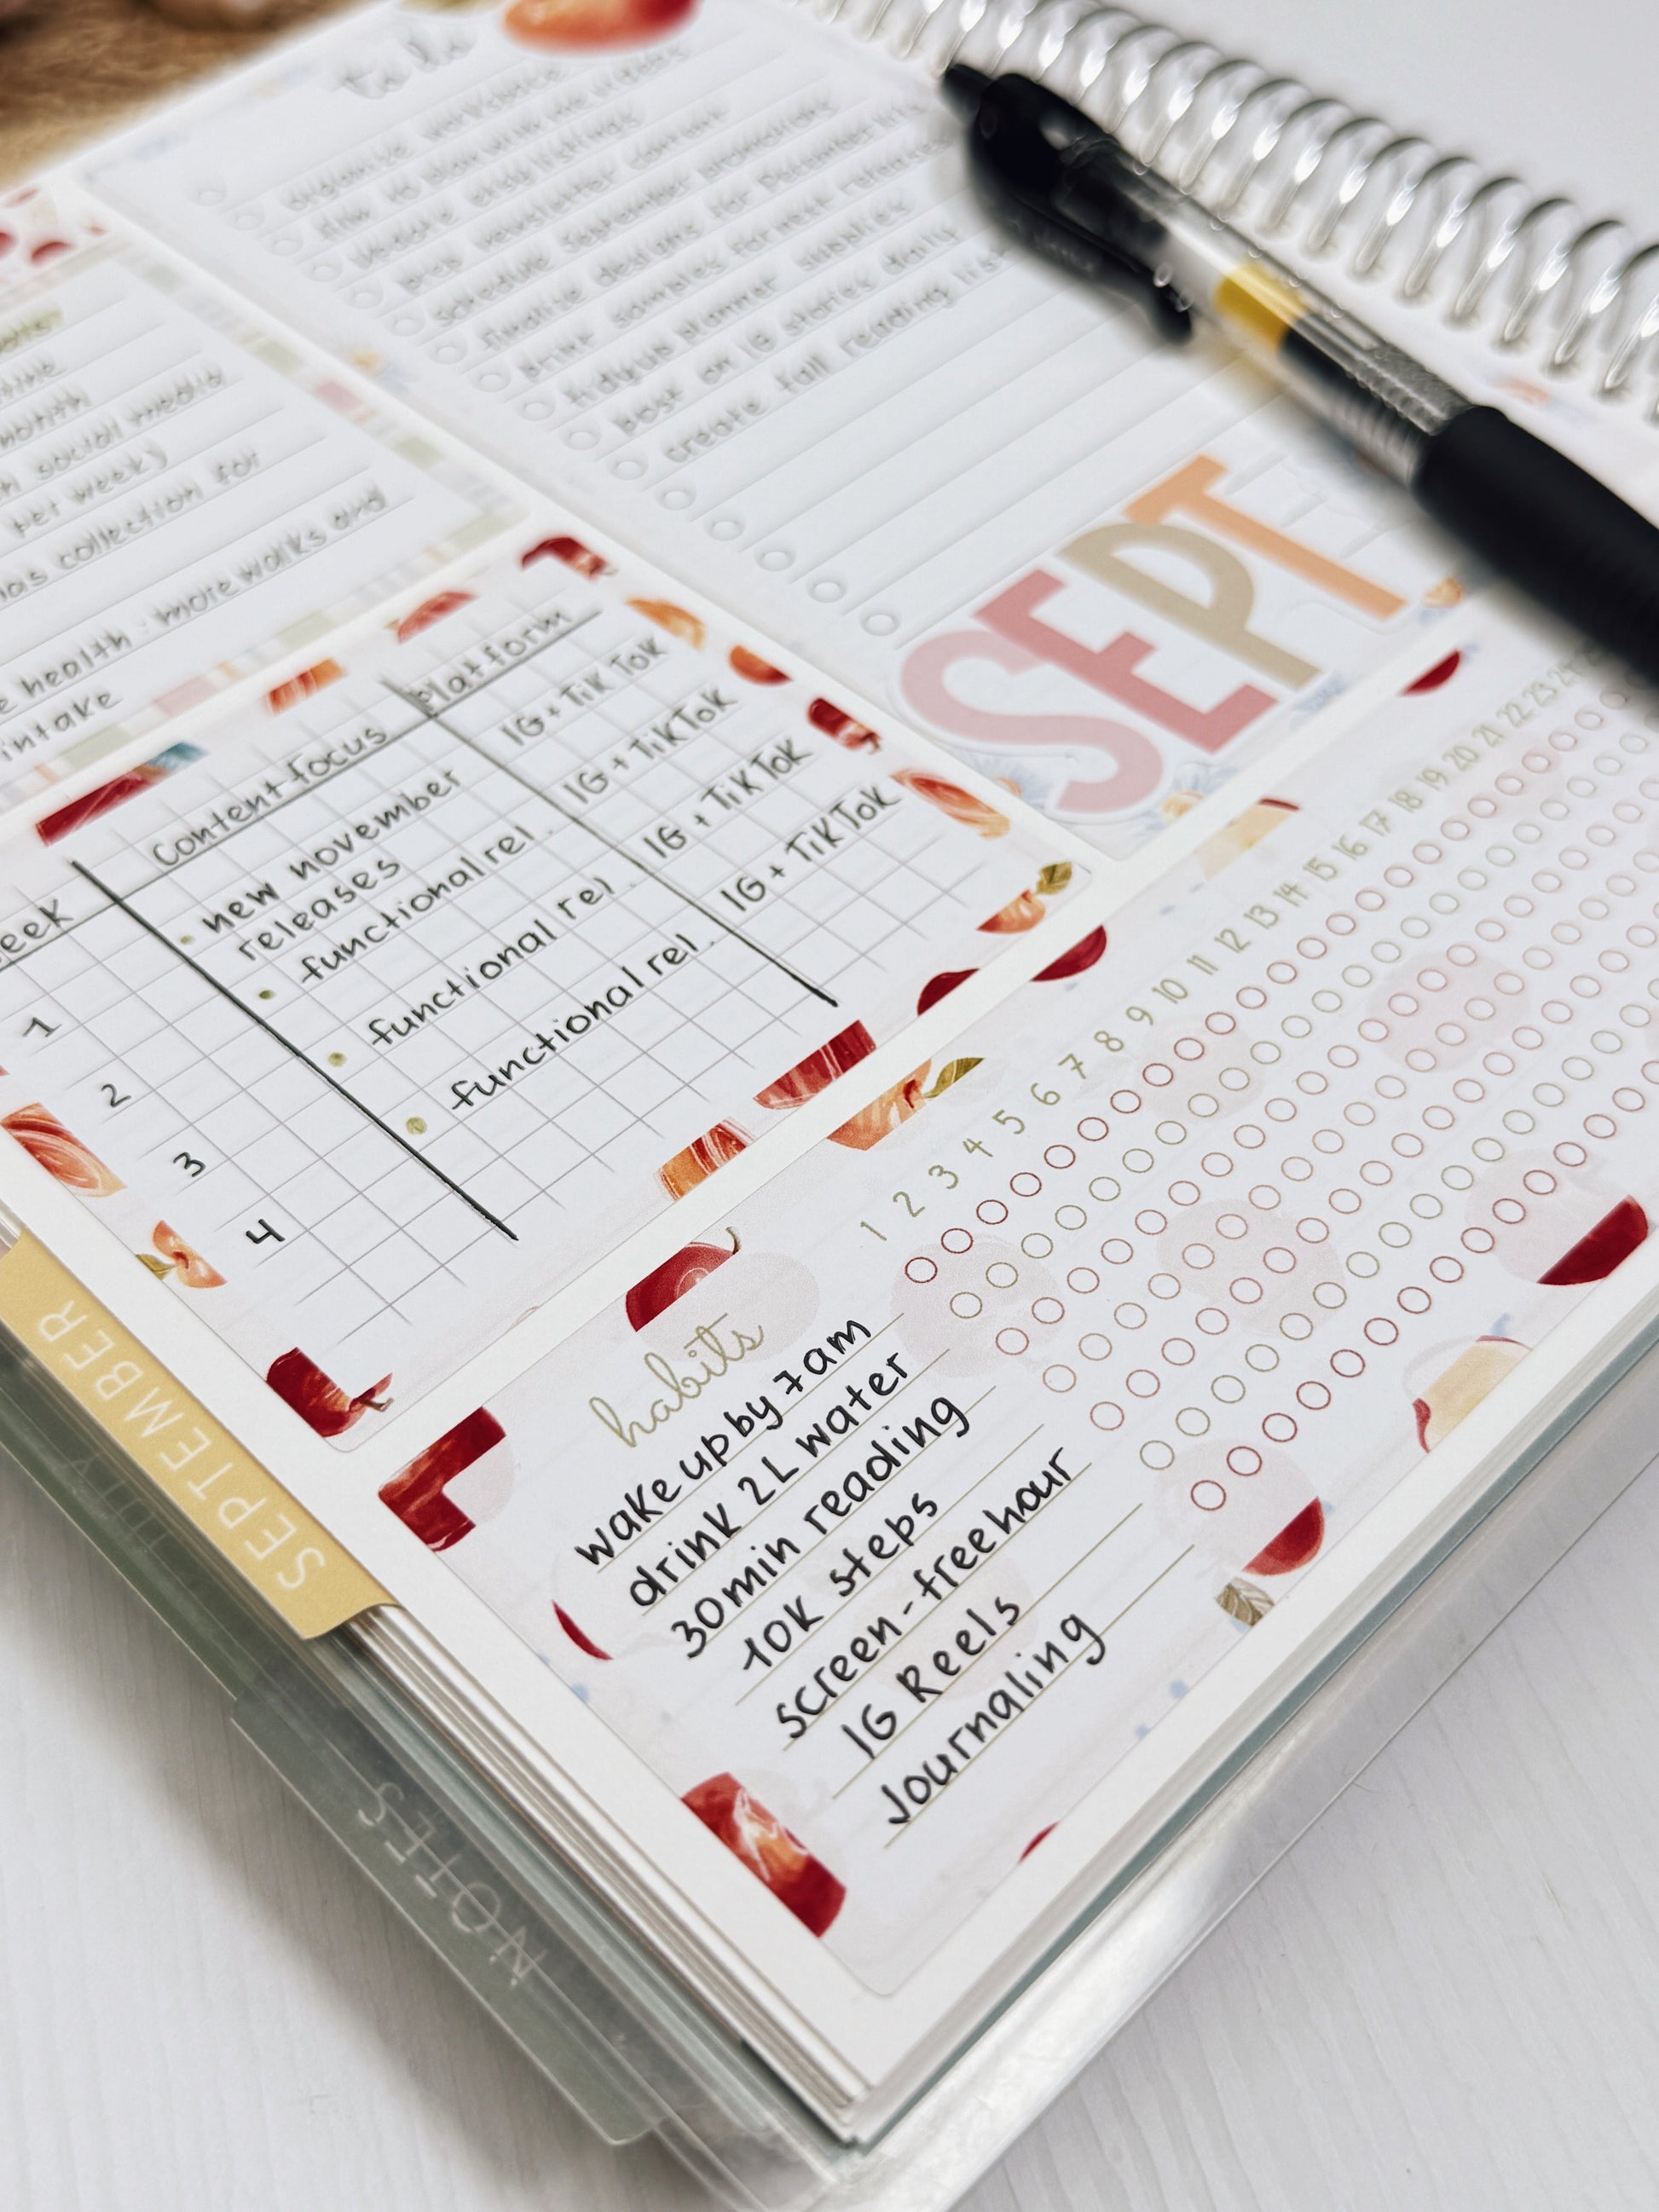 to do
organize workspace
film 10 plan with me videos
update etsy listings
prep newsletter content
schedule September promotions
finalize designs for December
print samples for next release
tidy up planner supplies
post on IG stories daily
create fall reading list
SEPT
month
social media
per week)
collection for
health: more walks and
intake
Content focus Platform
1 new november releases IG + TikTok
2 functional rel. IG + TikTok
3 functional rel. IG + TikTok
4 functional rel. IG + TikTok
1 2 3 4 5 6 7 8 9 10 11 12 13 14 15 16 17 18 19 20 21 22 23
habits
wake up by 7am
drink 2L water
30min reading
10K steps
screen-free hour
IG Reels
Journaling
SEPTEMBER
NOTES